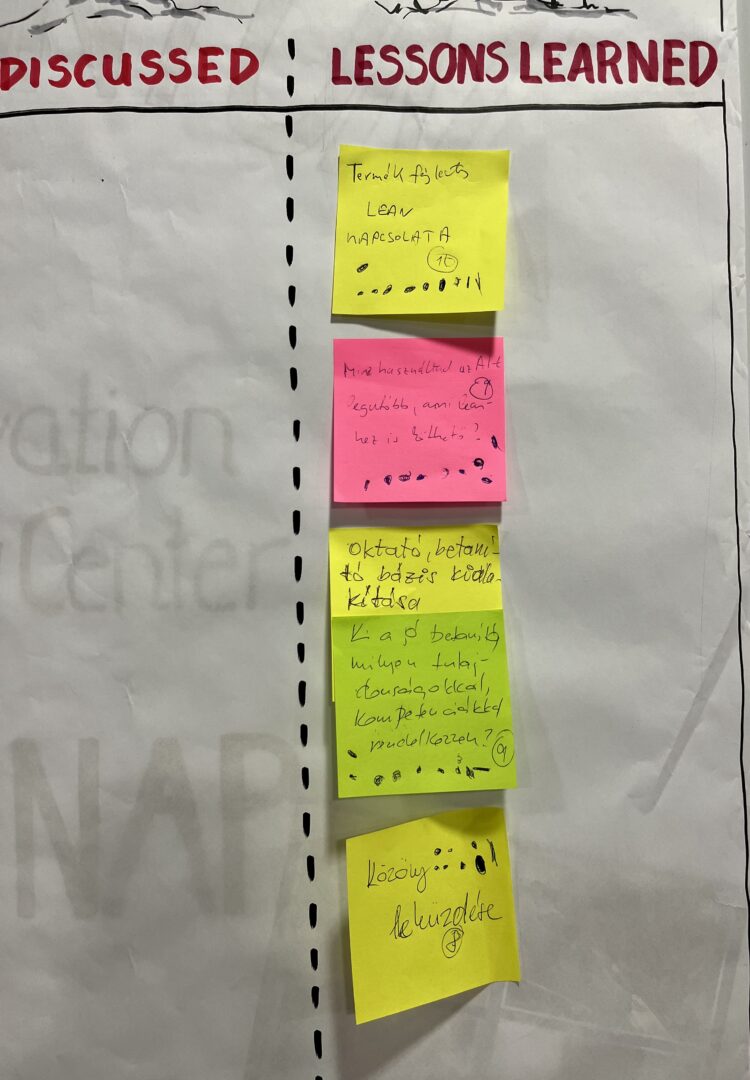 DISCUSSED
LESSONS LEARNED
Termék fejlesztés
LEAN
KAPCSOLATA
Mire használtad az AI-t
9
legutóbb, ami lean-
hez is köthető?
oktató, betaní-
tó bázis kiala-
kítása
Ki a jó betanító,
milyen tulaj-
donságokkal,
kompetenciákkal
rendelkezzen?
9
Közöny
leküzdése
8
vation
Center
NAP